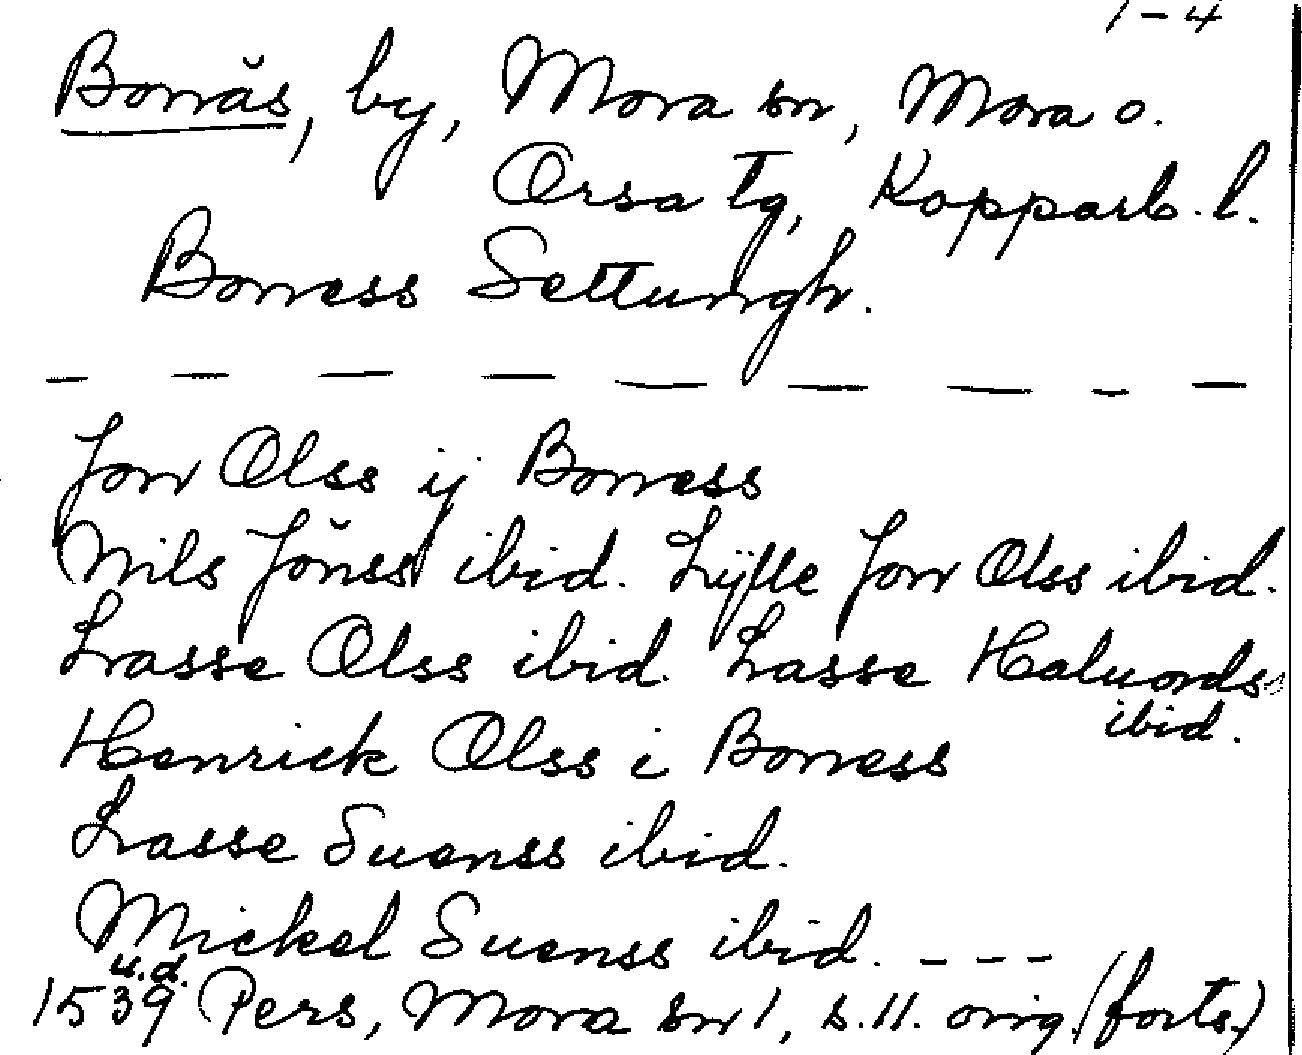 1-4
Bonäs, by, Mora sn, Mora o.
Orsa tg, Kopparb. l.
Boness Settungh.
— — — — — — — — —
Jon Olss ij Boness
Nils Jönss ibid. Lijlle Jon Olss ibid.
Lasse Olss ibid. Lasse Haluords
ibid.
Henrick Olss i Boness
Lasse Suenss ibid.
Mickel Suenss ibid. - - -
u.d.
1539 Pers, Mora sn 1, s. 11. orig. (forts.)